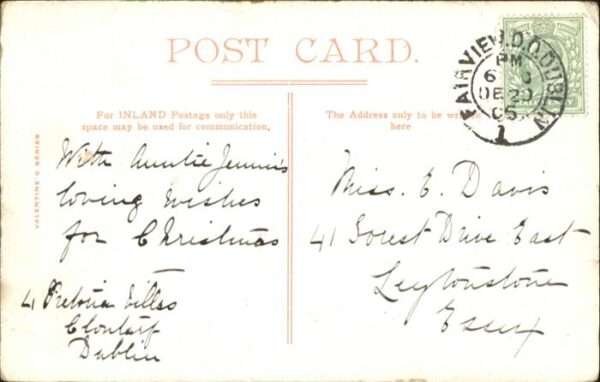 POST CARD.
For INLAND Postage only this
space may be used for communication.
The Address only to be
here
VALENTINE'S SERIES
FAIRVIEW.D.O.DUBLIN
PM
DE 20
05
1
With Auntie Jennie's
loving wishes
for Christmas
4 Pretoria Villas
Clontarf
Dublin
Miss. E. Davis
41 Forest Drive East
Leytonstone
Essex